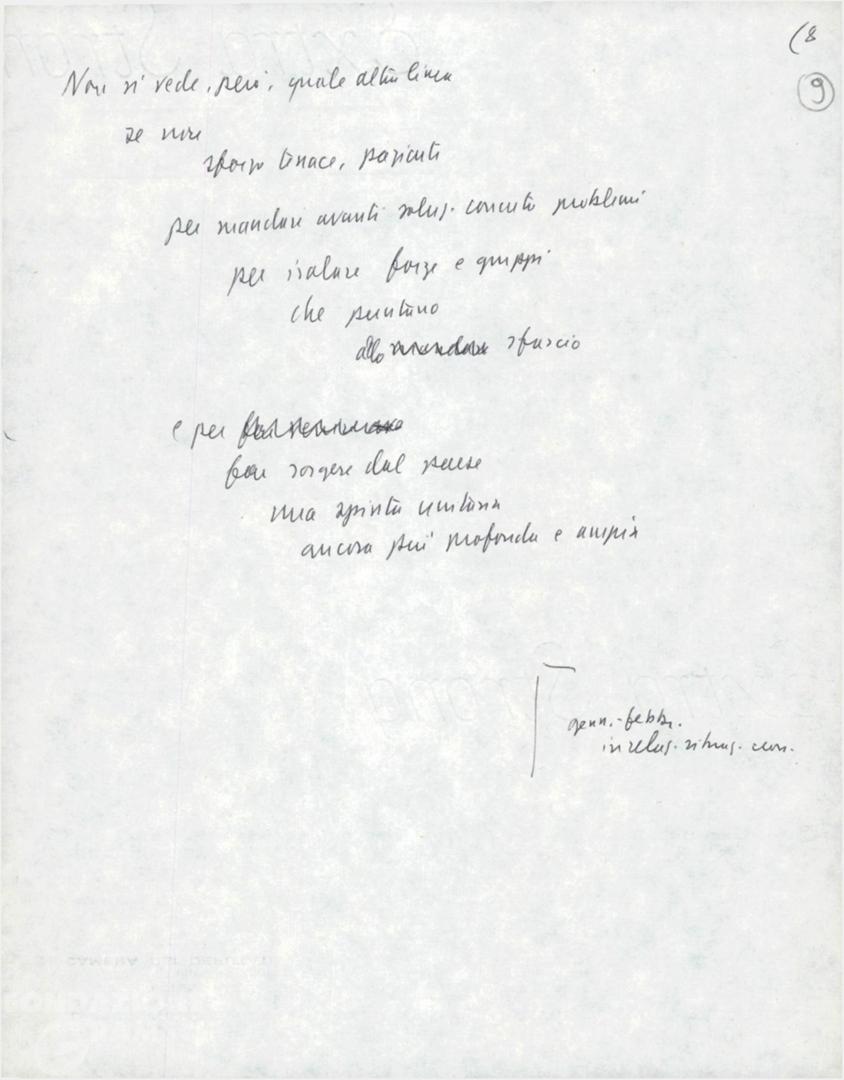 (8
9
Non si vede, però, quale altra linea
se non
sforzo tenace, paziente
per mandare avanti soluz. concrete problemi
per isolare forze e gruppi
che puntano
allo sfascio
e per
far sorgere dal paese
una spinta unitaria
ancora più profonda e ampia
genn.-febbr.
in relaz. situaz. econ.
CAMERA DEI DEPUTATI